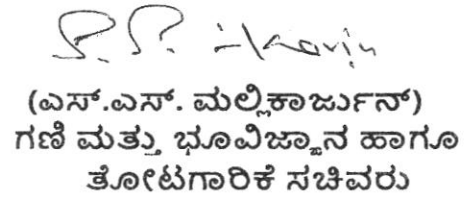 (ಎಸ್.ಎಸ್. ಮಲ್ಲಿಕಾರ್ಜುನ್)
ಗಣಿ ಮತ್ತು ಭೂವಿಜ್ಞಾನ ಹಾಗೂ
ತೋಟಗಾರಿಕೆ ಸಚಿವರು